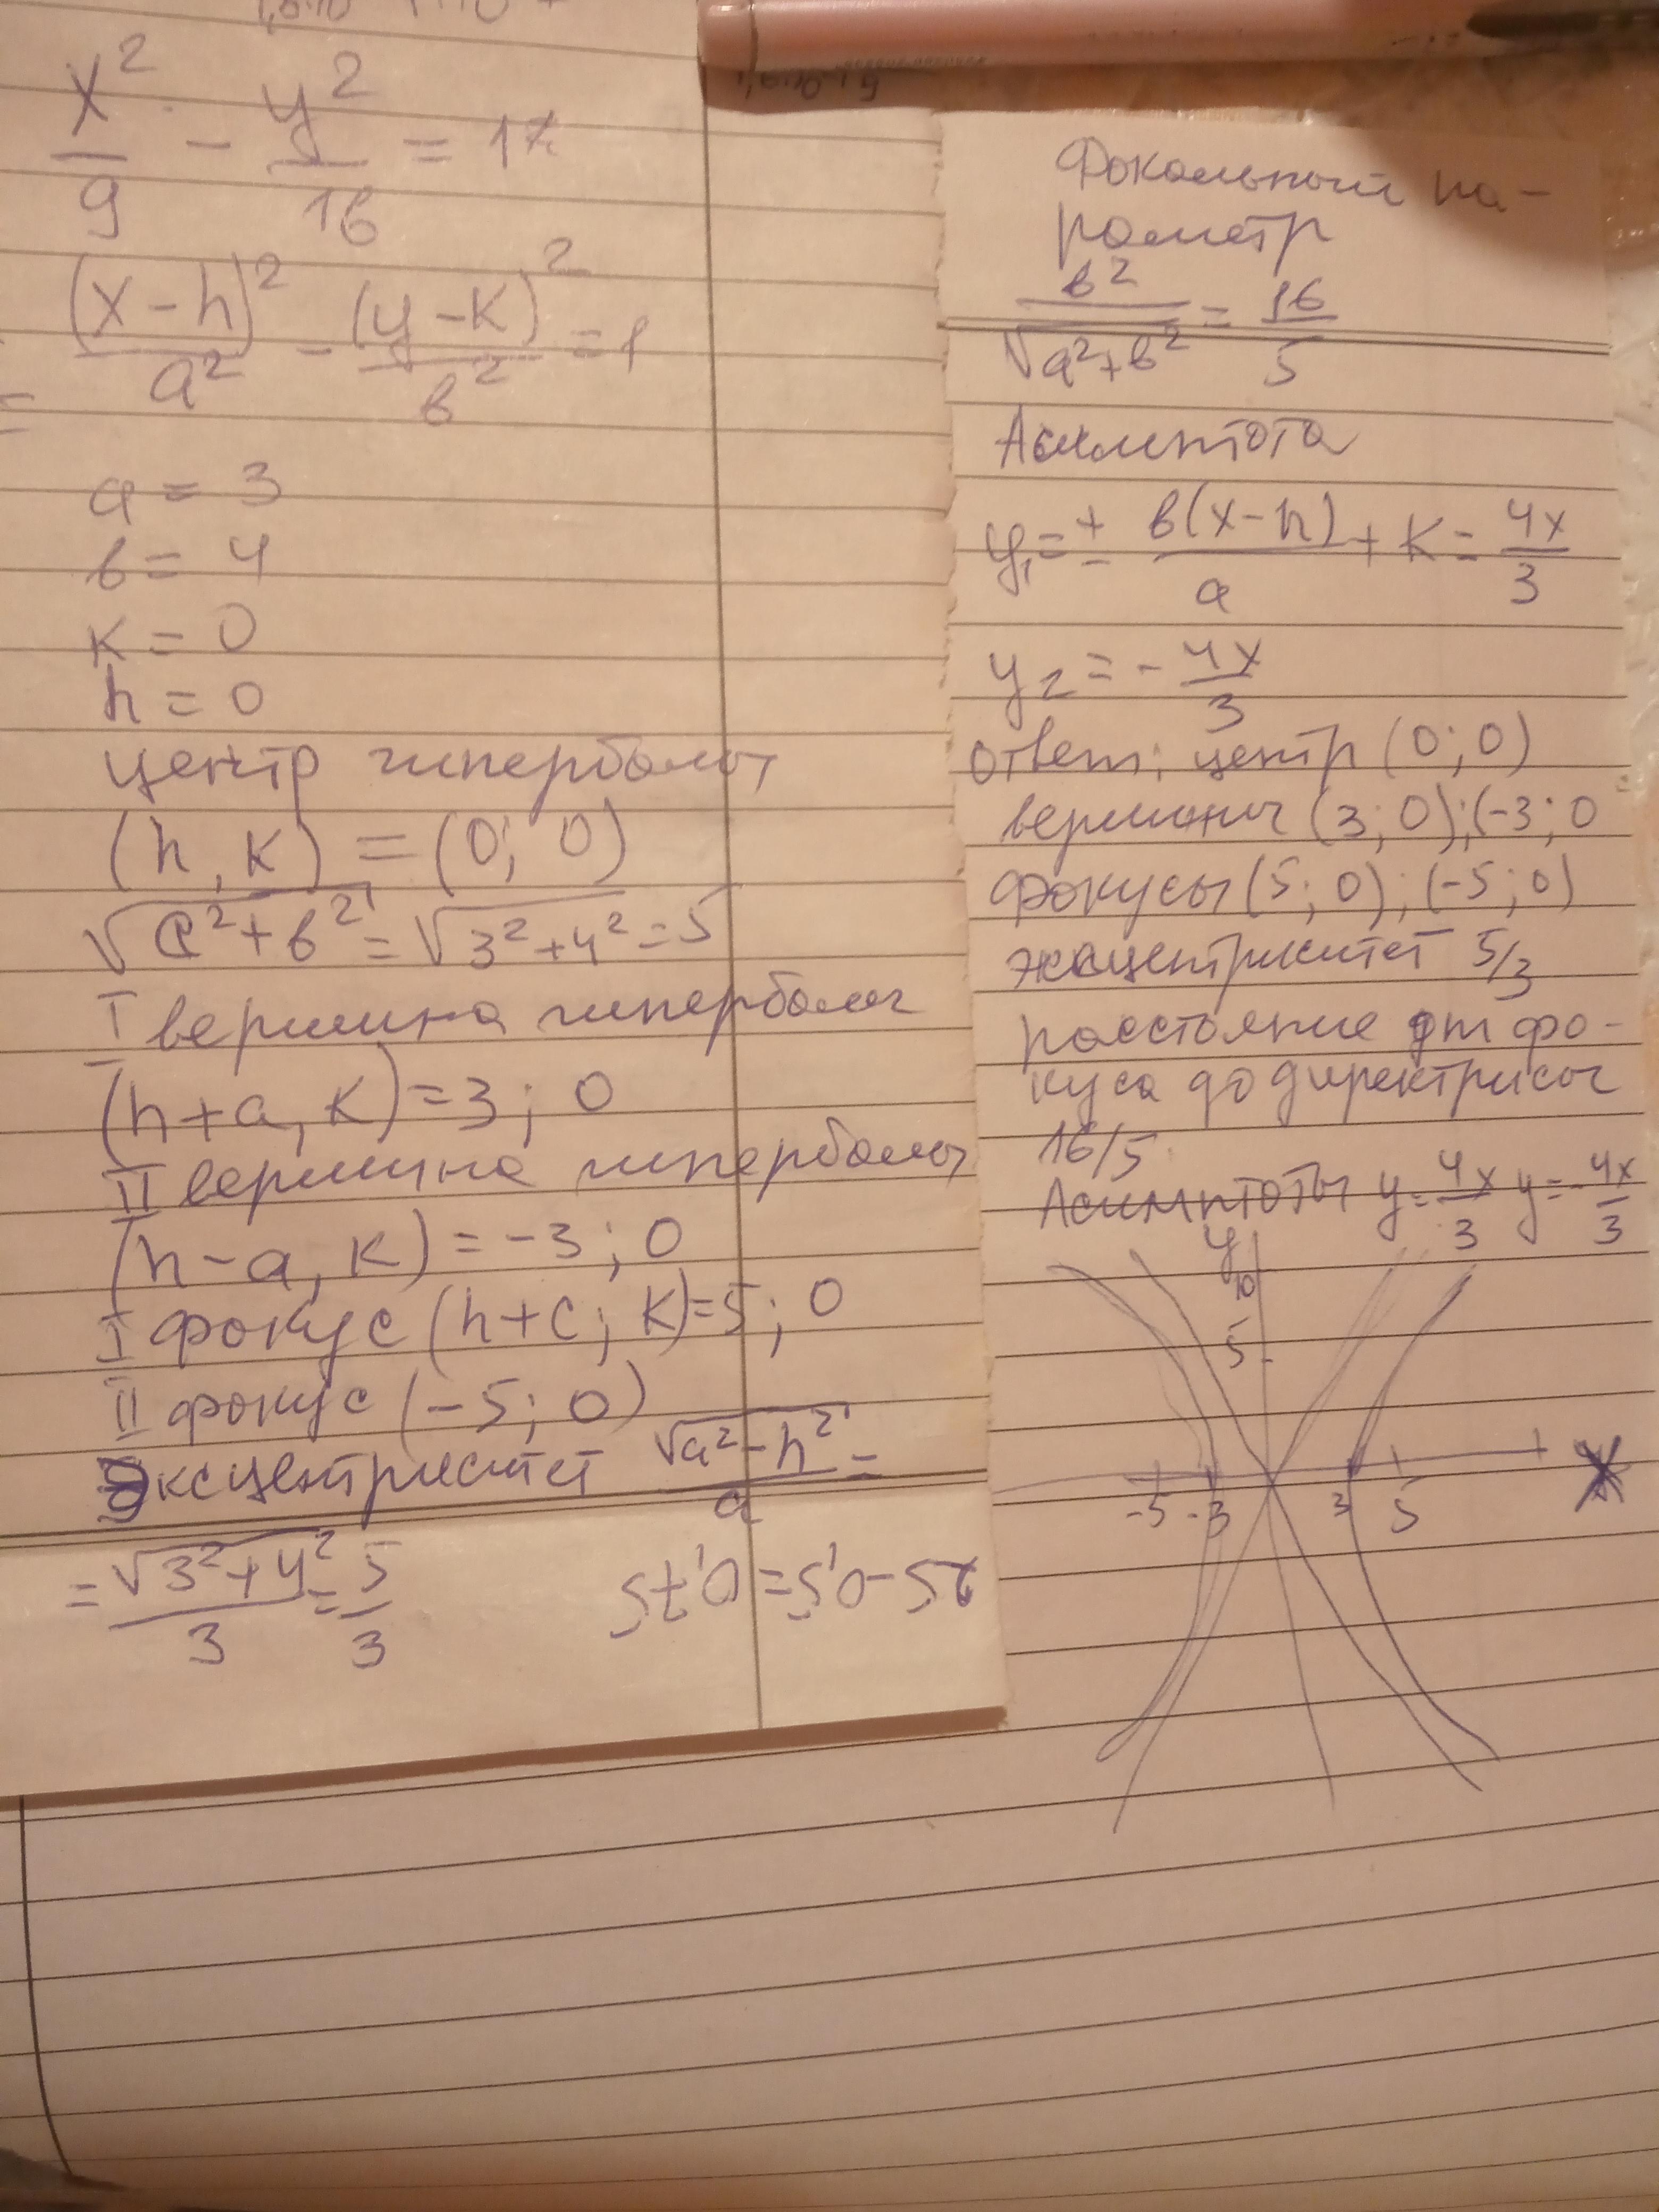 x²/9 - y²/16 = 1
(x-h)²/a² - (y-k)²/b² = 1
a = 3
b = 4
k = 0
h = 0
центр гиперболы
(h, k) = (0; 0)
√a²+b² = √3²+4² = 5
I вершина гиперболы
(h+a, k) = 3; 0
II вершина гиперболы
(h-a, k) = -3; 0
I фокус (h+c; k) = 5; 0
II фокус (-5; 0)
Эксцентриситет √a²-h²/a =
= √3²+4²/3 = 5/3
Фокальный па-
раметр
b²/√a²+b² = 16/5
Асимптота
y₁ = ± b(x-h)/a + k = 4x/3
y₂ = - 4x/3
ответ: центр (0; 0)
вершины (3; 0); (-3; 0
фокусы (5; 0); (-5; 0)
эксцентриситет 5/3
расстояние от фо-
куса до директрисы
16/5
Асимптоты y = 4x/3 y = -4x/3
y
10
5
-5 -3 3 5
x